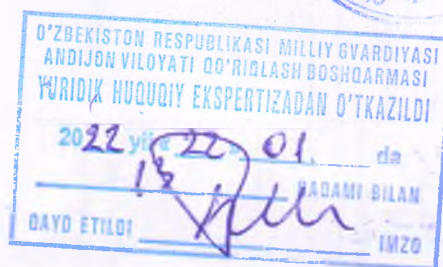 O'ZBEKISTON RESPUBLIKASI MILLIY GVARDIYASI
ANDIJON VILOYATI QO'RIQLASH BOSHQARMASI
YURIDIK HUQUQIY EKSPERTIZADAN O'TKAZILDI
2022 yil « 22 » 01. da
13 RAQAMI BILAN
QAYD ETILDI IMZO